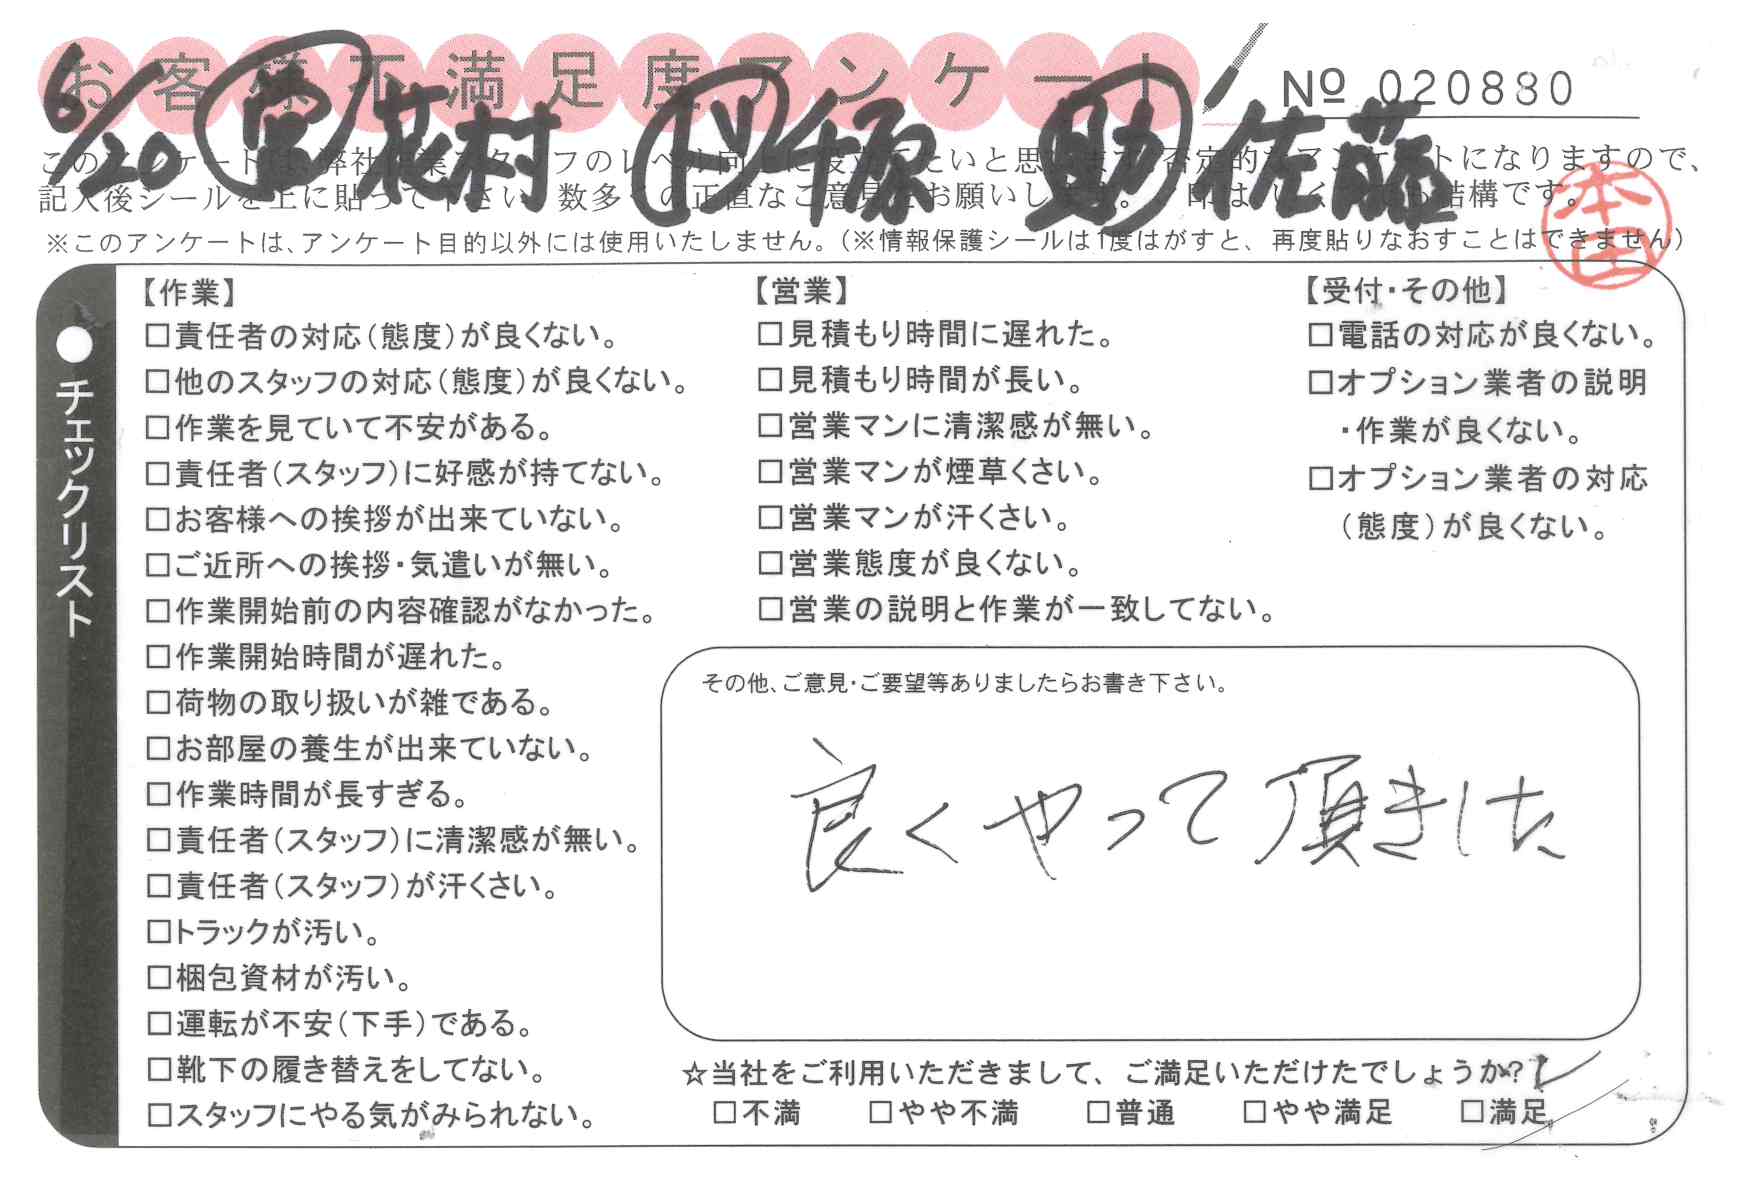 お客様不満足度アンケート
№ 020880
6/20 営 花村 作 千原 助 佐藤
このアンケートは、弊社作業スタッフのレベル向上に役立てたいと思います。否定的なアンケートになりますので、
記入後シールを上に貼って下さい。数多くの正直なご意見をお願いします。
結構です。
※このアンケートは、アンケート目的以外には使用いたしません。(※情報保護シールは1度はがすと、再度貼りなおすことはできません)
本田
チェックリスト
【作業】
□責任者の対応(態度)が良くない。
□他のスタッフの対応(態度)が良くない。
□作業を見ていて不安がある。
□責任者(スタッフ)に好感が持てない。
□お客様への挨拶が出来ていない。
□ご近所への挨拶・気遣いが無い。
□作業開始前の内容確認がなかった。
□作業開始時間が遅れた。
□荷物の取り扱いが雑である。
□お部屋の養生が出来ていない。
□作業時間が長すぎる。
□責任者(スタッフ)に清潔感が無い。
□責任者(スタッフ)が汗くさい。
□トラックが汚い。
□梱包資材が汚い。
□運転が不安(下手)である。
□靴下の履き替えをしてない。
□スタッフにやる気がみられない。
【営業】
□見積もり時間に遅れた。
□見積もり時間が長い。
□営業マンに清潔感が無い。
□営業マンが煙草くさい。
□営業マンが汗くさい。
□営業態度が良くない。
□営業の説明と作業が一致してない。
【受付・その他】
□電話の対応が良くない。
□オプション業者の説明
・作業が良くない。
□オプション業者の対応
(態度)が良くない。
その他、ご意見・ご要望等ありましたらお書き下さい。
良くやって頂きました
☆当社をご利用いただきまして、ご満足いただけたでしょうか?
□不満 □やや不満 □普通 □やや満足 □満足